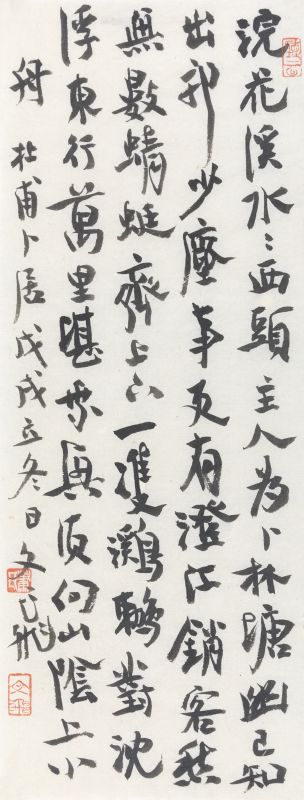 浣花溪水＝西頭主人為卜林塘幽已知
出郭少塵事更有澄江銷客愁
無數蜻蜓齊上下一雙鸂鶒對沈
浮東行萬里堪乘興須向山陰上小
舟 杜甫卜居戊戌立冬日文飛